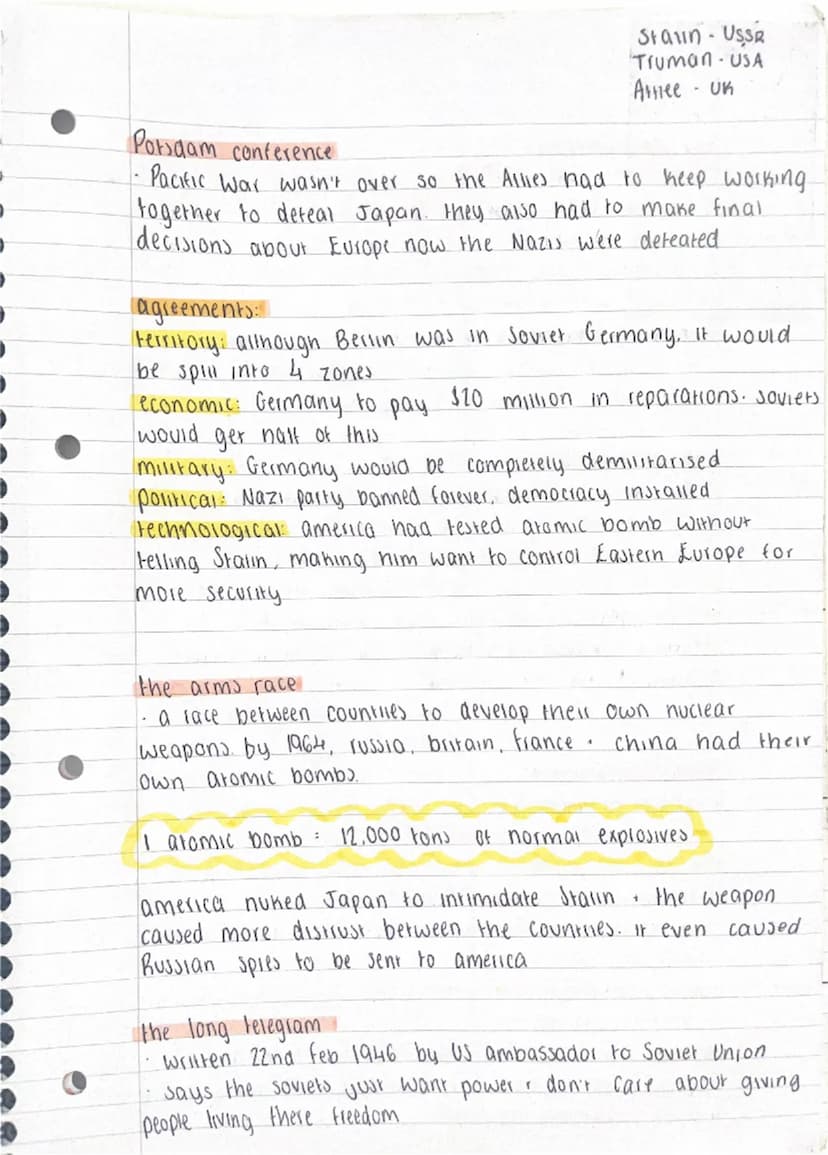 Stalin - USSR
Truman - USA
Attlee - UK
Potsdam conference
· Pacific War wasn't over so the Allies had to keep working
together to defeat Japan. they also had to make final
decisions about Europe now the Nazis were defeated
agreements:
territory: although Berlin was in Soviet Germany, it would
be split into 4 zones
economic: Germany to pay $20 million in reparations. soviets
would get half of this
military: Germany would be completely demilitarised
political: Nazi party banned forever, democracy installed
technological: america had tested atomic bomb without
telling Stalin, making him want to control Eastern Europe for
more security
the arms race
· a race between countries to develop their own nuclear
weapons. by 1964, russia, britain, france + china had their
own atomic bombs.
1 atomic bomb = 12,000 tons of normal explosives
america nuked Japan to intimidate Stalin + the weapon
caused more distrust between the countries. it even caused
Russian spies to be sent to america
the long telegram
· written 22nd feb 1946 by US ambassador to Soviet Union
· says the soviets just want power + don't care about giving
people living there freedom